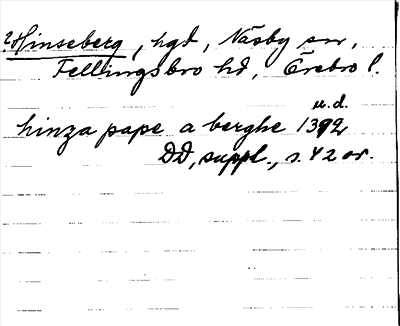 2 Hinseberg, hgd, Näsby sn,
Fellingsbro hd, Örebro l.
u.d.
hinza pape a berghe 1392
DD, suppl., s. 42 or.